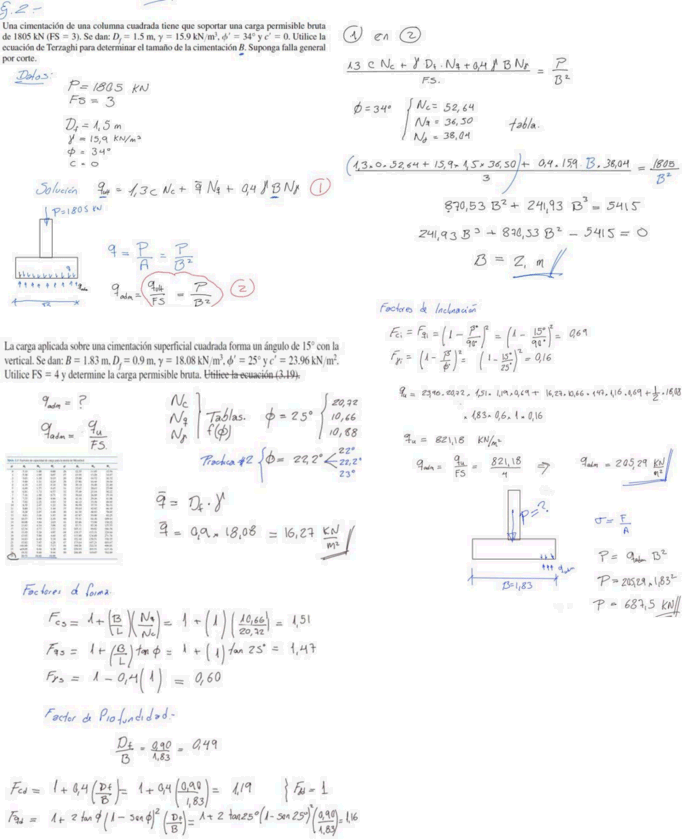 Ej. 2.-
Una cimentación de una columna cuadrada tiene que soportar una carga permisible bruta
de 1805 kN (FS = 3). Se dan: D_f = 1.5 m, γ = 15.9 kN/m³, φ' = 34° y c' = 0. Utilice la
ecuación de Terzaghi para determinar el tamaño de la cimentación B. Suponga falla general
por corte.
Datos:
P = 1805 KN
FS = 3
D_f = 1,5 m
γ = 15,9 KN/m³
φ = 34°
c = 0
Solución q_ult = 1,3 c N_c + q̄ N_q + 0,4 γ B N_γ ①
P=1805 KN
q = P/A = P/B²
q_adm = q_ult/FS = P/B² ②
① en ②
(1,3 c N_c + γ D_f · N_q + 0,4 γ B N_γ)/FS. = P/B²
φ = 34° { N_c = 52,64
N_q = 36,50 tabla.
N_γ = 38,04
(1,3 * 0 * 52,64 + 15,9 * 1,5 * 36,50) + 0,4 * 15,9 * B * 38,04 / 3 = 1805/B²
870,53 B² + 241,93 B³ = 5415
241,93 B³ + 870,53 B² - 5415 = 0
B = 2, m
La carga aplicada sobre una cimentación superficial cuadrada forma un ángulo de 15° con la
vertical. Se dan: B = 1.83 m, D_f = 0.9 m, γ = 18.08 kN/m³, φ' = 25° y c' = 23.96 kN/m².
Utilice FS = 4 y determine la carga permisible bruta. Utilice la ecuación (3.19).
q_adm = ?
q_adm = q_u/FS.
N_c
N_q } Tablas. φ = 25° { 20,72
N_γ f(φ) 10,66
10,88
Practica #2 { φ = 22,2° < 22°
22,2°
23°
q̄ = D_f · γ
q̄ = 0,9 * 18,08 = 16,27 KN/m²
Factores de forma
F_cs = 1 + (B/L)(N_q/N_c) = 1 + (1)(10,66/20,72) = 1,51
F_qs = 1 + (B/L) tan φ = 1 + (1) tan 25° = 1,47
F_γs = 1 - 0,4(1) = 0,60
Factor de Profundidad.-
D_f/B = 0,90/1,83 = 0,49
F_cd = 1 + 0,4 (D_f/B) = 1 + 0,4 (0,90/1,83) = 1,19 } F_γd = 1
F_qd = 1 + 2 tan φ (1 - sen φ)² (D_f/B) = 1 + 2 tan 25° (1 - sen 25°)² (0,90/1,83) = 1,16
Factores de Inclinación
F_ci = F_qi = (1 - β°/90°)² = (1 - 15°/90°)² = 0,69
F_γi = (1 - β/φ)² = (1 - 15°/25°)² = 0,16
q_u = 23,96 * 20,72 * 1,51 * 1,19 * 0,69 + 16,27 * 10,66 * 1,47 * 1,16 * 0,69 + 1/2 * 18,08
* 1,83 * 0,6 * 1 * 0,16
q_u = 821,18 KN/m²
q_adm = q_u/FS = 821,18/4 ⇒ q_adm = 205,29 KN/m²
P=?
q_adm
B=1,83
σ = F/A
P = q_adm B²
P = 205,29 * 1,83²
P = 687,5 KN